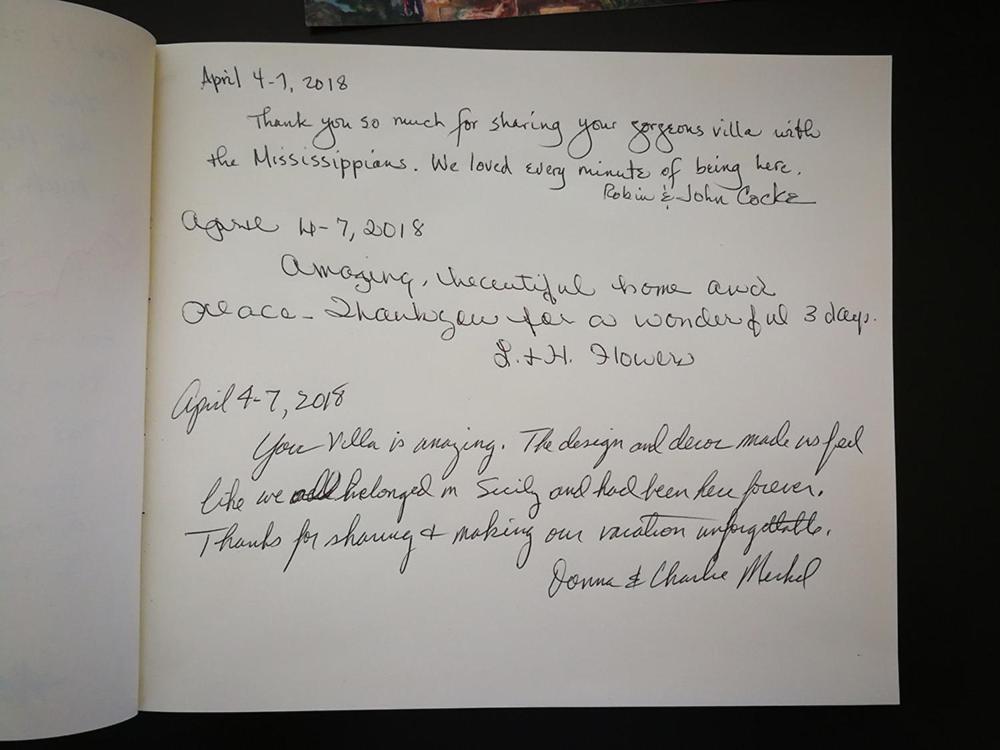 April 4-7, 2018
Thank you so much for sharing your gorgeous villa with
the Mississippians. We loved every minute of being here.
Robin & John Cocke
April 4-7, 2018
Amazing, beautiful home and
place - Thank you for a wonderful 3 days.
L. + H. Flowers
April 4-7, 2018
Your Villa is amazing. The design and decor made us feel
like we all belonged in Sicily and had been here forever.
Thanks for sharing & making our vacation unforgettable.
Donna & Charlie Merkel